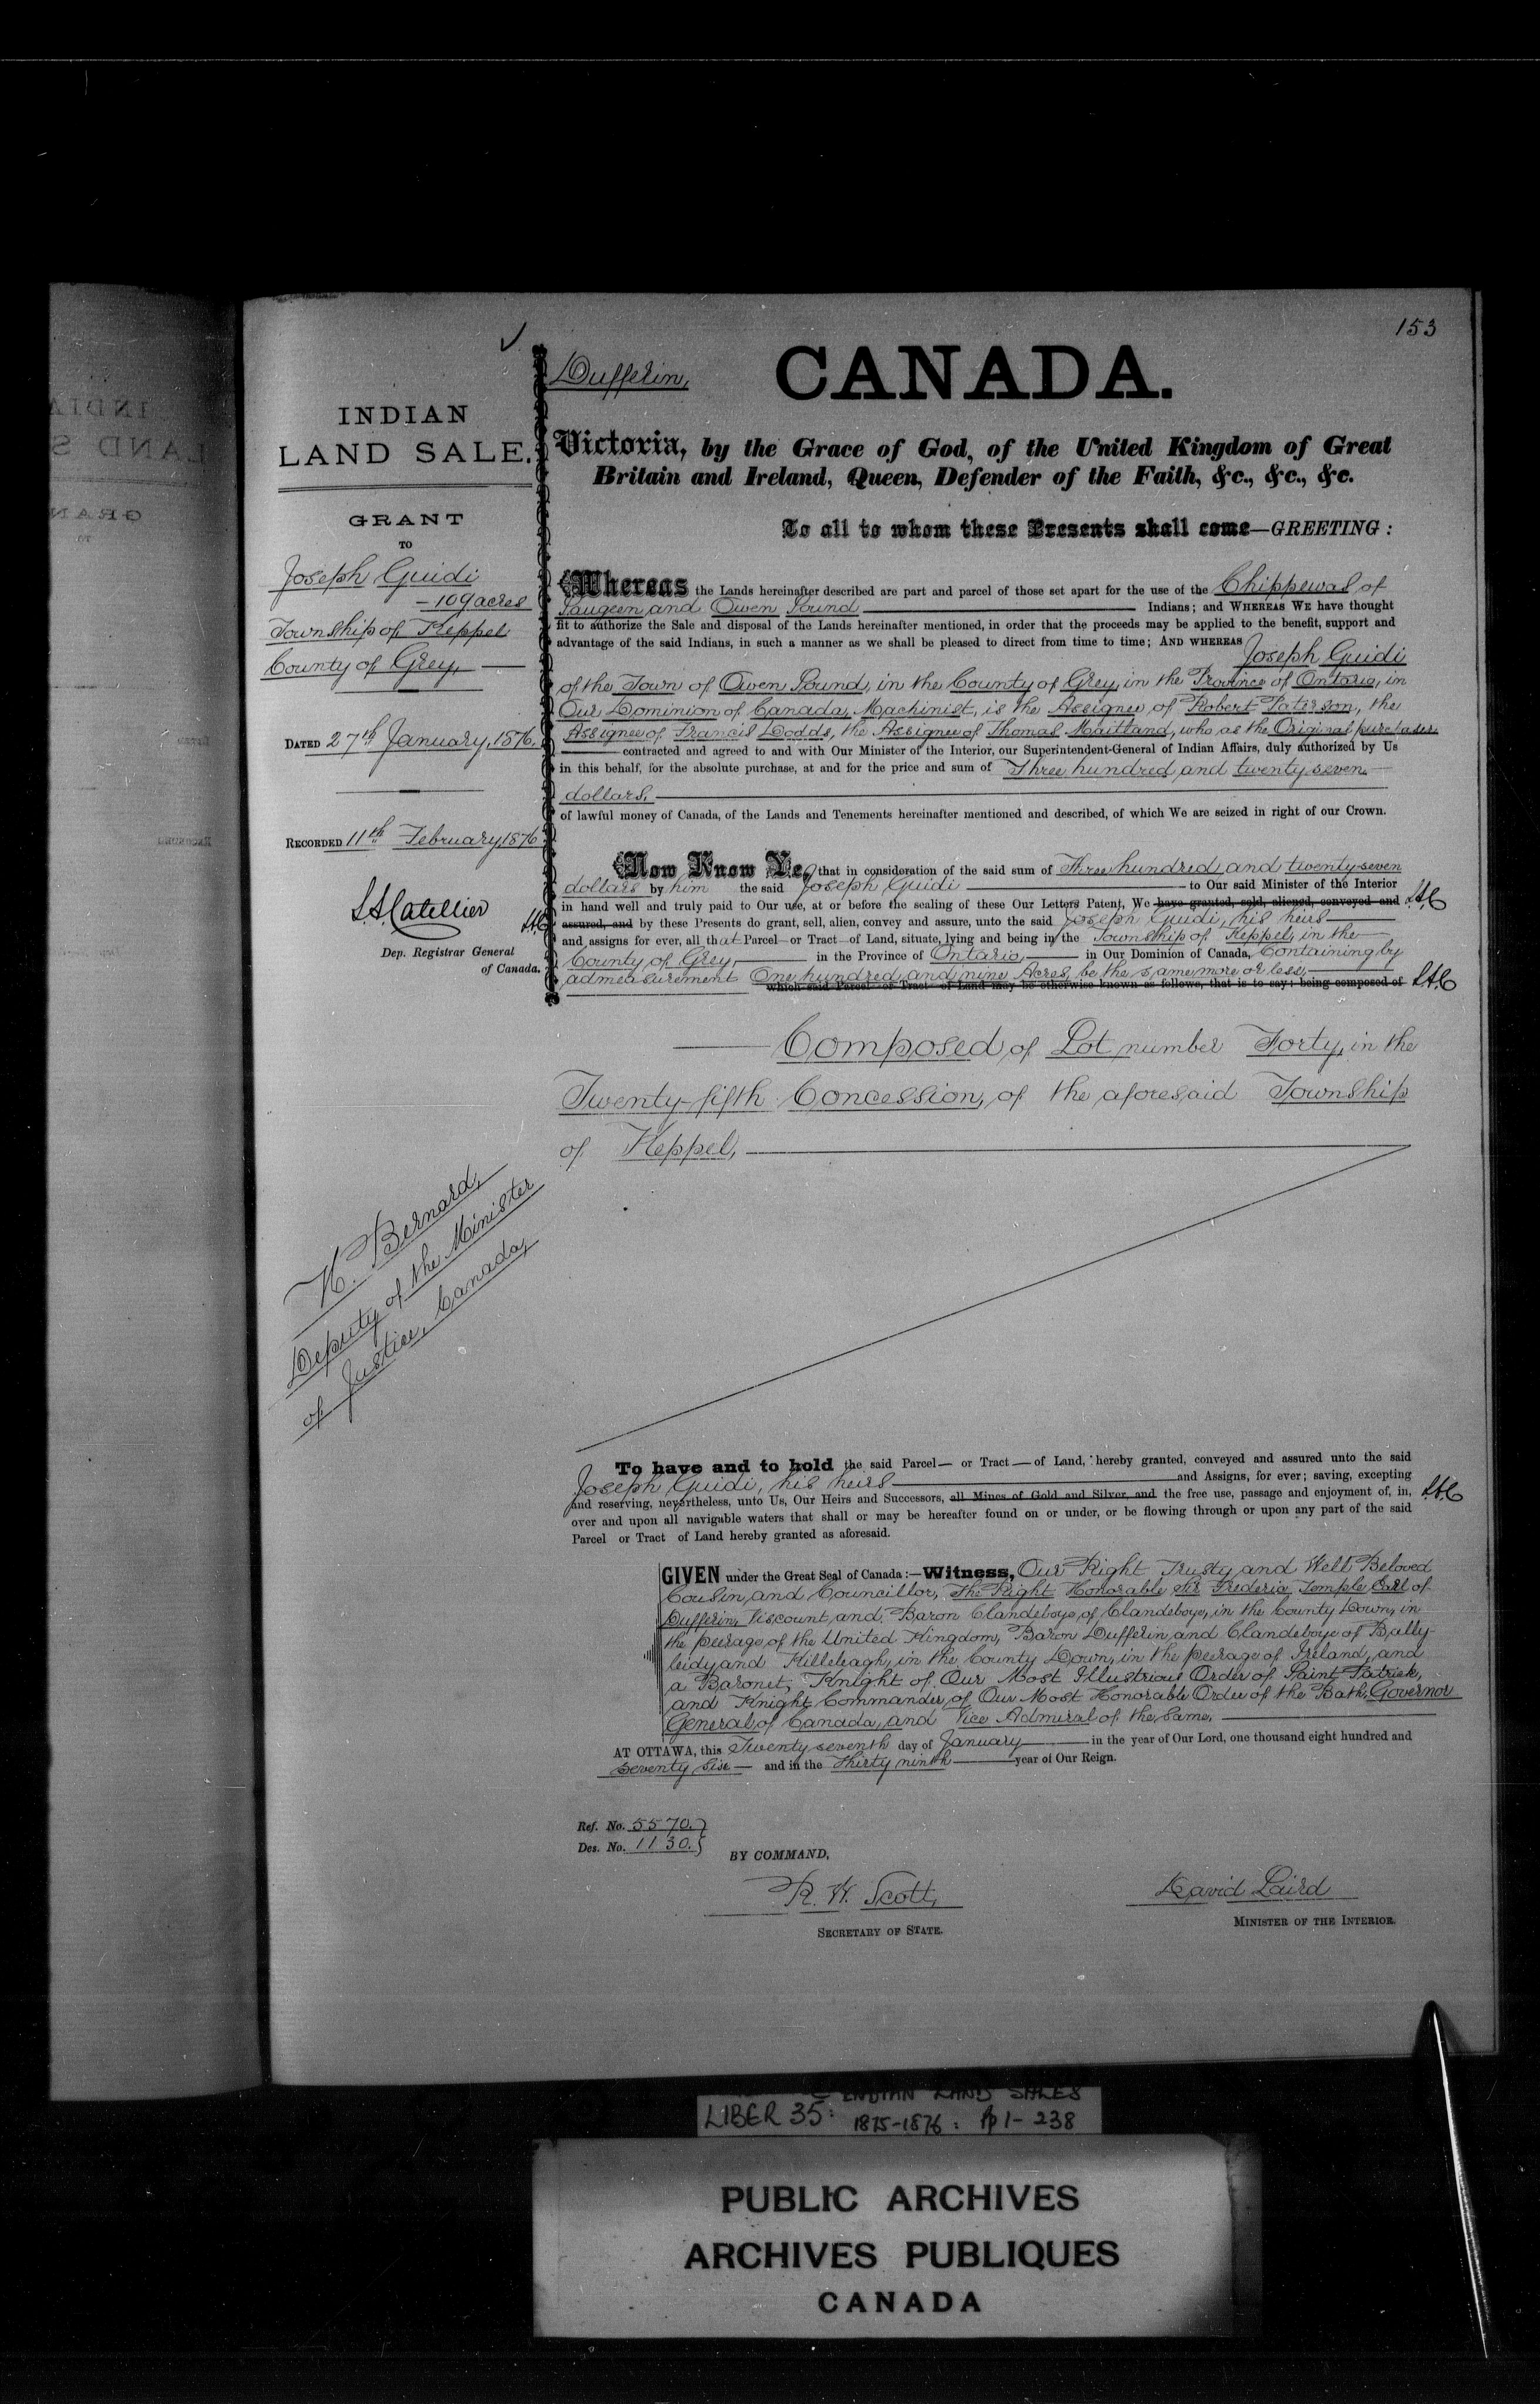 153
INDIAN
LAND SALE.
GRANT
TO
Joseph Guidi
- 109 acres
Township of Keppel
County of Grey,
DATED 27th January, 1876.
RECORDED 11th February, 1876
L.A. Catellier
Dep. Registrar General
of Canada.
H. Bernard,
Deputy of the Minister
of Justice, Canada,
Dufferin,
CANADA.
Victoria, by the Grace of God, of the United Kingdom of Great
Britain and Ireland, Queen, Defender of the Faith, &c., &c., &c.
To all to whom these Presents shall come—GREETING:
Whereas the Lands hereinafter described are part and parcel of those set apart for the use of the Chippewas of
Saugeen and Owen Sound Indians; and WHEREAS WE have thought
fit to authorize the Sale and disposal of the Lands hereinafter mentioned, in order that the proceeds may be applied to the benefit, support and
advantage of the said Indians, in such a manner as we shall be pleased to direct from time to time; AND WHEREAS Joseph Guidi
of the Town of Owen Sound, in the County of Grey, in the Province of Ontario, in
Our Dominion of Canada, Machinist, is the Assignee of Robert Paterson, the
Assignee of Francis Dodds, the Assignee of Thomas Maitland, who as the Original purchaser
contracted and agreed to and with Our Minister of the Interior, our Superintendent-General of Indian Affairs, duly authorized by Us
in this behalf, for the absolute purchase, at and for the price and sum of Three hundred and twenty seven
dollars,
of lawful money of Canada, of the Lands and Tenements hereinafter mentioned and described, of which We are seized in right of our Crown.
Now Know Ye, that in consideration of the said sum of Three hundred and twenty-seven
dollars by him the said Joseph Guidi to Our said Minister of the Interior
in hand well and truly paid to Our use, at or before the sealing of these Our Letters Patent, We have granted, sold, aliened, conveyed and L.A.C
L.A.C assured, and by these Presents do grant, sell, alien, convey and assure, unto the said Joseph Guidi, his heirs
and assigns for ever, all that Parcel—or Tract—of Land, situate, lying and being in the Township of Keppel, in the
County of Grey, in the Province of Ontario, in Our Dominion of Canada, Containing by
admeasurement One hundred and nine Acres, be the same more or less,
which said Parcel or Tract of Land may be otherwise known as follows, that is to say: being composed of L.A.C
Composed of Lot number Forty, in the
Twenty-fifth Concession, of the aforesaid Township
of Keppel,
To have and to hold the said Parcel— or Tract— of Land, hereby granted, conveyed and assured unto the said
Joseph Guidi, his heirs and Assigns, for ever; saving, excepting
and reserving, nevertheless, unto Us, Our Heirs and Successors, all Mines of Gold and Silver, and the free use, passage and enjoyment of, in, L.A.C
over and upon all navigable waters that shall or may be hereafter found on or under, or be flowing through or upon any part of the said
Parcel or Tract of Land hereby granted as aforesaid.
GIVEN under the Great Seal of Canada:—Witness, Our Right Trusty and Well Beloved
Cousin and Councillor, The Right Honorable Sir Frederic Temple Earl of
Dufferin, Viscount and Baron Clandeboye of Clandeboye, in the County Down, in
the peerage of the United Kingdom, Baron Dufferin and Clandeboye of Bally-
leidy and Killeleagh, in the County Down, in the peerage of Ireland, and
a Baronet, Knight of Our Most Illustrious Order of Saint Patrick,
and Knight Commander of Our Most Honorable Order of the Bath, Governor
General of Canada, and Vice Admiral of the same.
AT OTTAWA, this Twenty seventh day of January in the year of Our Lord, one thousand eight hundred and
seventy six and in the Thirty ninth year of Our Reign.
Ref. No. 5570.
Des. No. 1130.
BY COMMAND,
R. W. Scott,
SECRETARY OF STATE.
David Laird
MINISTER OF THE INTERIOR.
INDIAN LAND SALES
LIBER 35: 1875-1876: pp 1-238
PUBLIC ARCHIVES
ARCHIVES PUBLIQUES
CANADA